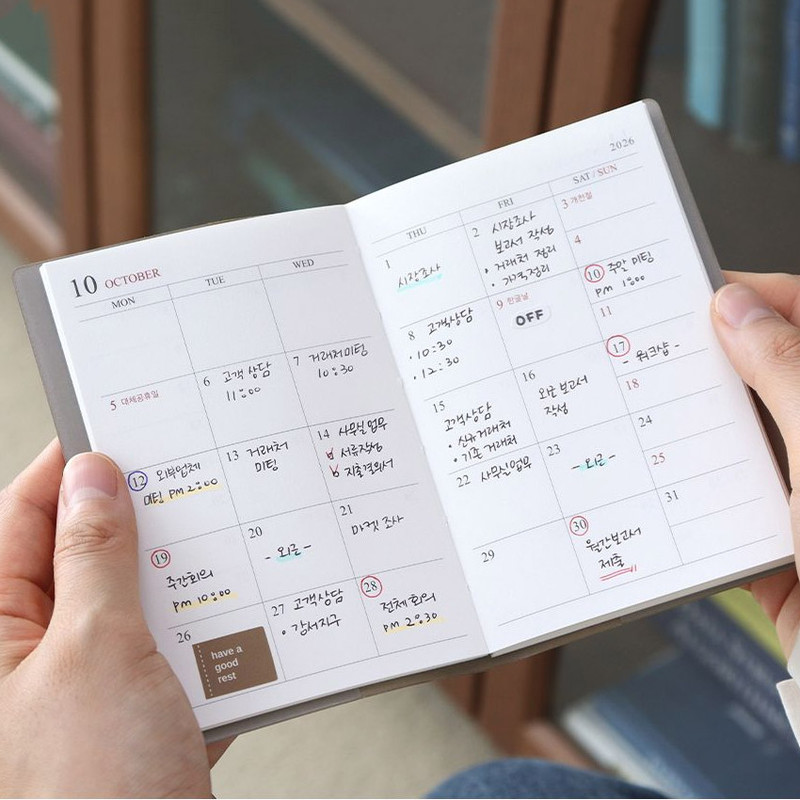 10 OCTOBER
MON TUE WED
5 대체공휴일
6 고객 상담
11:00
7 거래처미팅
10:30
12 외부업체
미팅 PM 2:00
13 거래처
미팅
14 사무실 업무
서류작성
지출결의서
19
주간회의
PM 10:00
20
- 외근 -
21
마켓 조사
26
have a
good
rest
27 고객상담
• 강서지구
28
전체회의
PM 2:30
2026
THU FRI SAT / SUN
1
시장조사
2 시장조사
보고서 작성
• 거래처 정리
• 가격정리
3 개천절
4
8 고객상담
• 10:30
• 12:30
9 한글날
OFF
10 주말 미팅
PM 1:00
11
15
고객상담
• 신규거래처
• 기존 거래처
16
외근 보고서
작성
17
- 워크샵 -
18
22 사무실업무
23
- 외근 -
24
25
29
30
월간보고서
제출
31